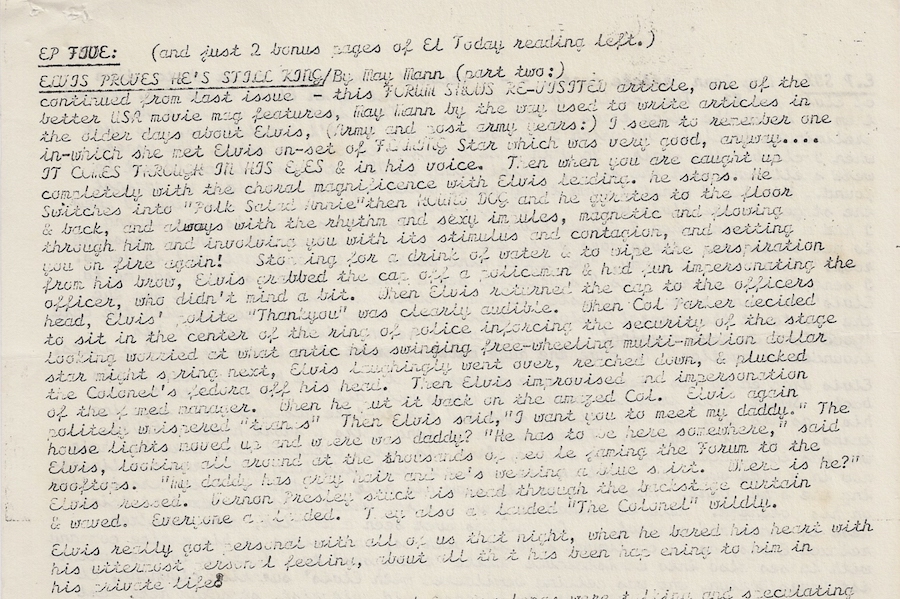 EP FIVE: (and just 2 bonus pages of El Today reading left.)
ELVIS PROVES HE'S STILL KING/By May Mann (part two:)
continued from last issue - this FORUM SHOWS RE-VISITED article, one of the
better USA movie mag features, May Mann by the way used to write articles in
the older days about Elvis, (Army and post army years:) I seem to remember one
in-which she met Elvis on-set of FLAMING Star which was very good, anyway....
IT COMES THROUGH IN HIS EYES & in his voice. Then when you are caught up
completely with the choral magnificence with Elvis leading. he stops. He
Switches into "Polk Salad Annie"then HOUND DOG and he gyrates to the floor
& back, and always with the rhythm and sexy impules, magnetic and flowing
through him and involving you with its stimulus and contagion, and setting
you on fire again! Stopping for a drink of water & to wipe the perspiration
from his brow, Elvis grabbed the cap off a policeman & had fun impersonating the
officer, who didn't mind a bit. When Elvis returned the cap to the officers
head, Elvis' polite "Thankyou" was clearly audible. When Col Parker decided
to sit in the center of the ring of police inforcing the security of the stage
looking worried at what antic his swinging free-wheeling multi-million dollar
star might spring next, Elvis laughingly went over, reached down, & plucked
the Colonel's fedora off his head. Then Elvis improvised and impersonation
of the famed manager. When he put it back on the amazed Col. Elvis again
politely whispered "thanks" Then Elvis said,"I want you to meet my daddy." The
house lights moved up and where was daddy? "He has to be here somewhere," said
Elvis, looking all around at the thousands of people jamming the Forum to the
rooftops. "My daddy has gray hair and he's wearing a blue shirt. Where is he?"
Elvis Vernon Presley stuck his head through the backstage curtain
& waved. Everyone applauded. They also applauded "The Colonel" wildly.
Elvis really got personal with all of us that night, when he bared his heart with
his uttermost personal feeling, about all that has been happening to him in
his private life
were and speculating